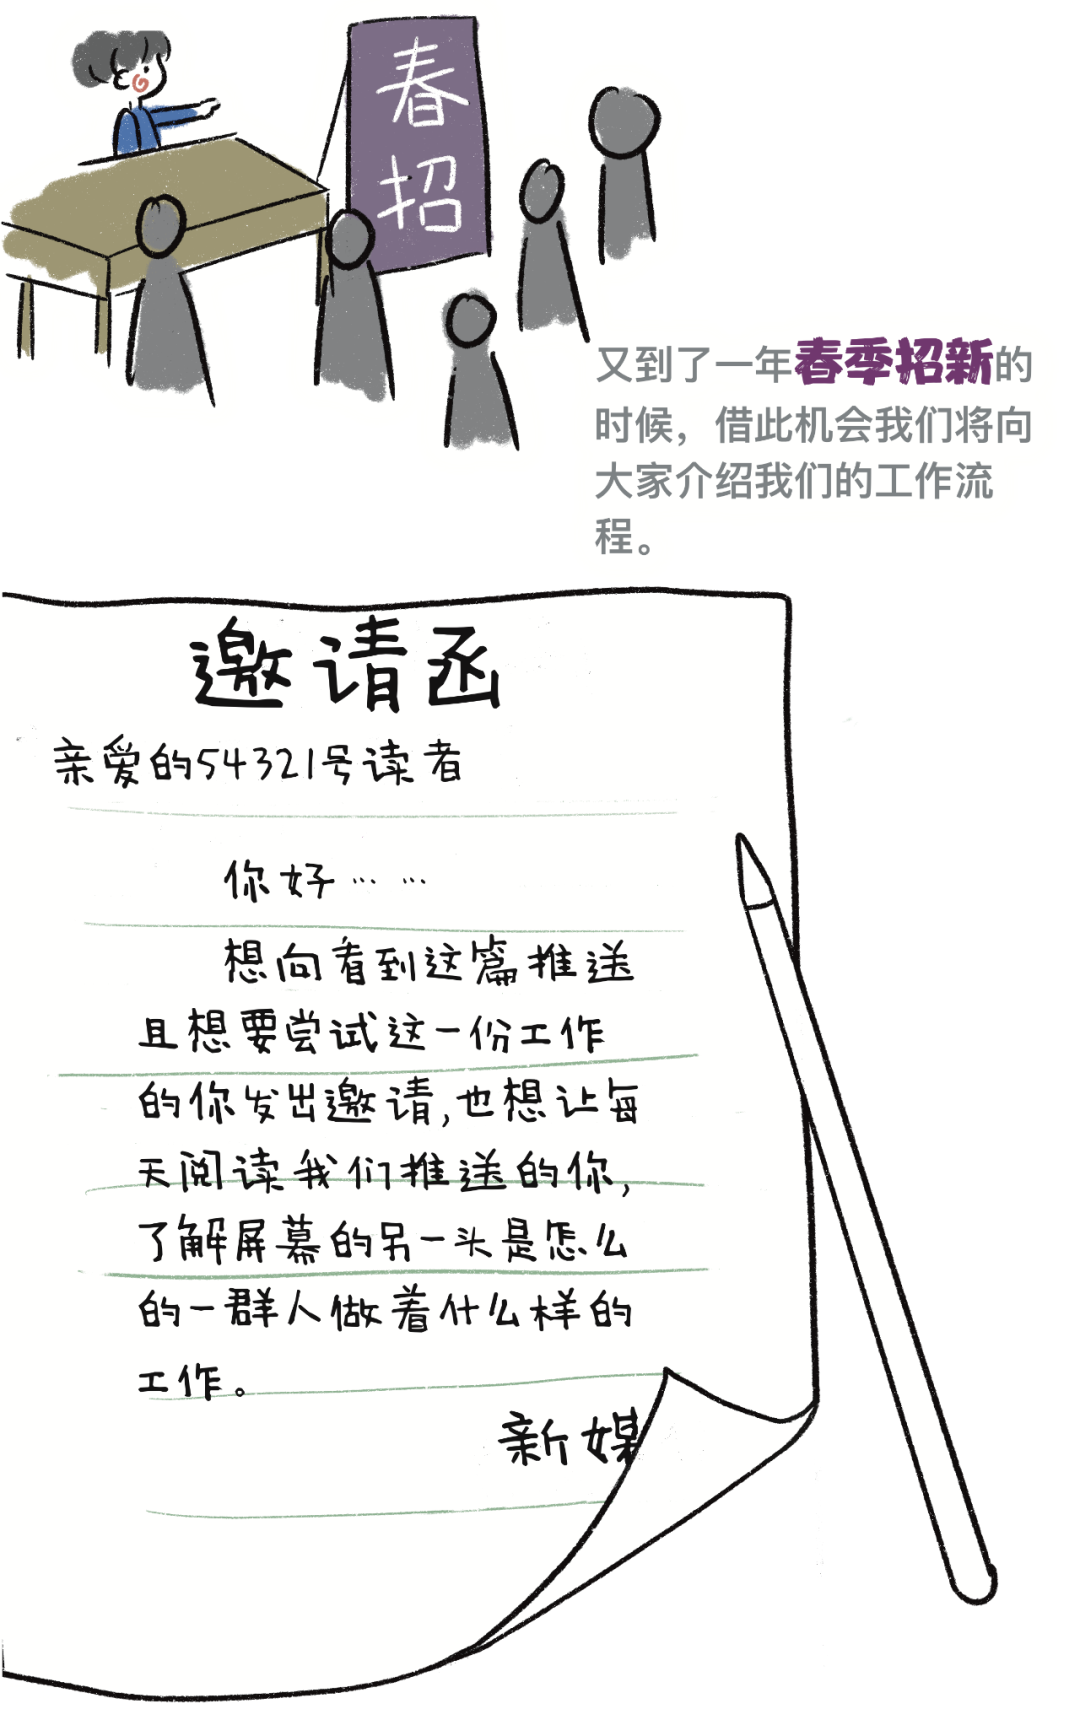 春
招
又到了一年春季招新的
时候，借此机会我们将向
大家介绍我们的工作流
程。
邀请函
亲爱的54321号读者
你好……
想向看到这篇推送
且想要尝试这一份工作
的你发出邀请,也想让每
天阅读我们推送的你,
了解屏幕的另一头是怎么
的一群人做着什么样的
工作。
新媒